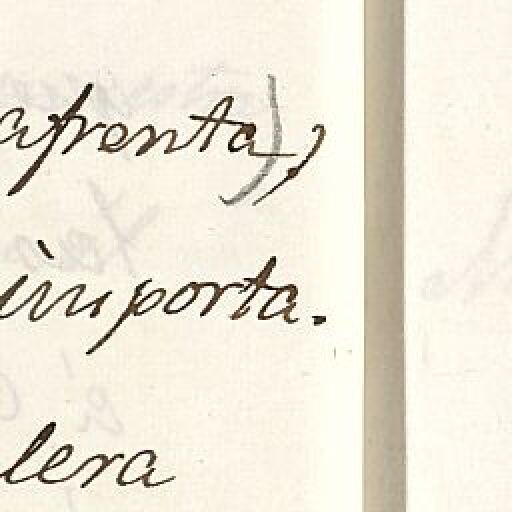 afrenta);
importa.
lera